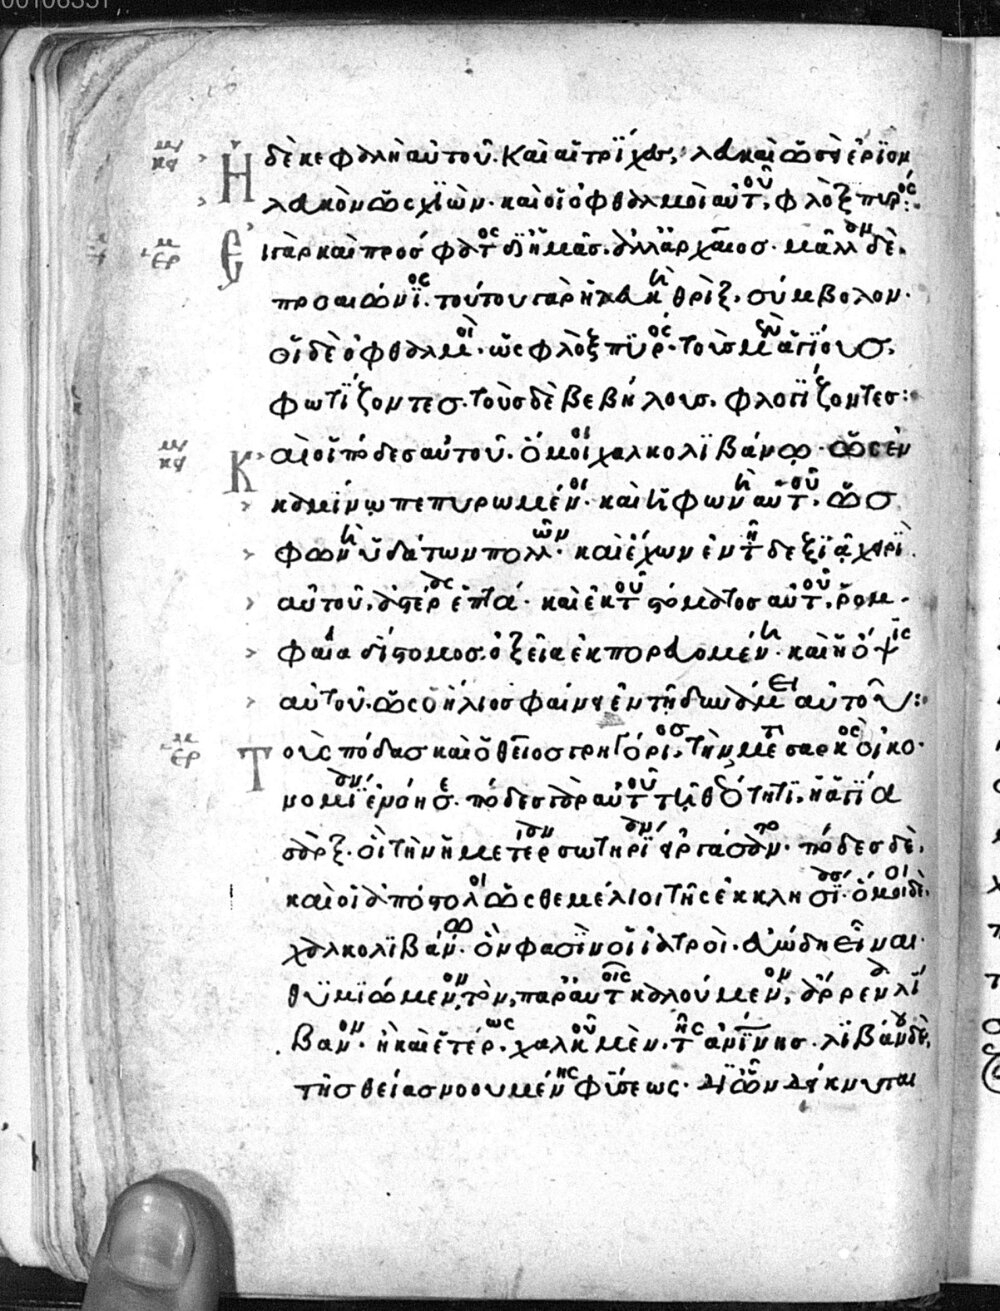 00106331
Ἡ δὲ κεφαλὴ αὐτοῦ καὶ αἱ τρίχες, λευκαὶ ὡσεὶ ἔριον
λευκὸν ὡς χιών· καὶ οἱ ὀφθαλμοὶ αὐτοῦ, φλὸξ πυρός:
Εἰ γὰρ καὶ πρόσφατος δι' ἡμᾶς, ἀλλ' ἀρχαῖος· μᾶλλον δὲ,
προαιώνιος. τούτου γὰρ ἡ λευκὴ θρὶξ, σύμβολον·
οἱ δὲ ὀφθαλμοὶ· ὡς φλὸξ πυρός· τοὺς μὲν ἁγίους,
φωτίζοντες· τοὺς δὲ βεβήλους, φλογίζοντες:
Καὶ οἱ πόδες αὐτοῦ. ὅμοιοι χαλκολιβάνω· ὡς ἐν
καμίνω πεπυρωμένοι· καὶ ἡ φωνὴ αὐτοῦ, ὡς
φωνὴ ὑδάτων πολλῶν· καὶ ἔχων ἐν τῇ δεξιᾷ χειρὶ
αὐτοῦ, ἀστέρας ἑπτά· καὶ ἐκ τοῦ στόματος αὐτοῦ, ῥομ
φαία δίστομος ὀξεῖα ἐκπορευομένη· καὶ ἡ ὄψις
αὐτοῦ. ὡς ὁ ἥλιος φαίνει ἐν τῇ δυνάμει αὐτοῦ:
Τοὺς πόδας καὶ ὁ θεῖος Γρηγόριος, τὴν μετὰ σαρκὸς οἰκο
νομίαν ἐνόησε. πόδες γὰρ αὐτοῦ τῆς θεότητι, ἡ ἁγία
σάρξ. οἱ τὴν ἡμετέραν σωτηρίαν ἐργάσαντο· πόδες δὲ,
καὶ οἱ ἀπόστολοι ὡς θεμέλιοι τῆς ἐκκλησίας· ὅμοιοι δὲ,
χαλκολιβάνω. ὃν φασὶν οἱ ἰατροὶ. εὐώδη εἶναι
θυμιώμενον, τὸν παρ' αὐτοῖς καλούμενον, ἄρρενα λί
βανον. ἢ καὶ ἑτέρως. χαλκοῦ μὲν, τῆς ἀνίνης. λιβάνου δὲ,
τῆς θείας νοουμένης φύσεως. δι' ὧν δείκνυται